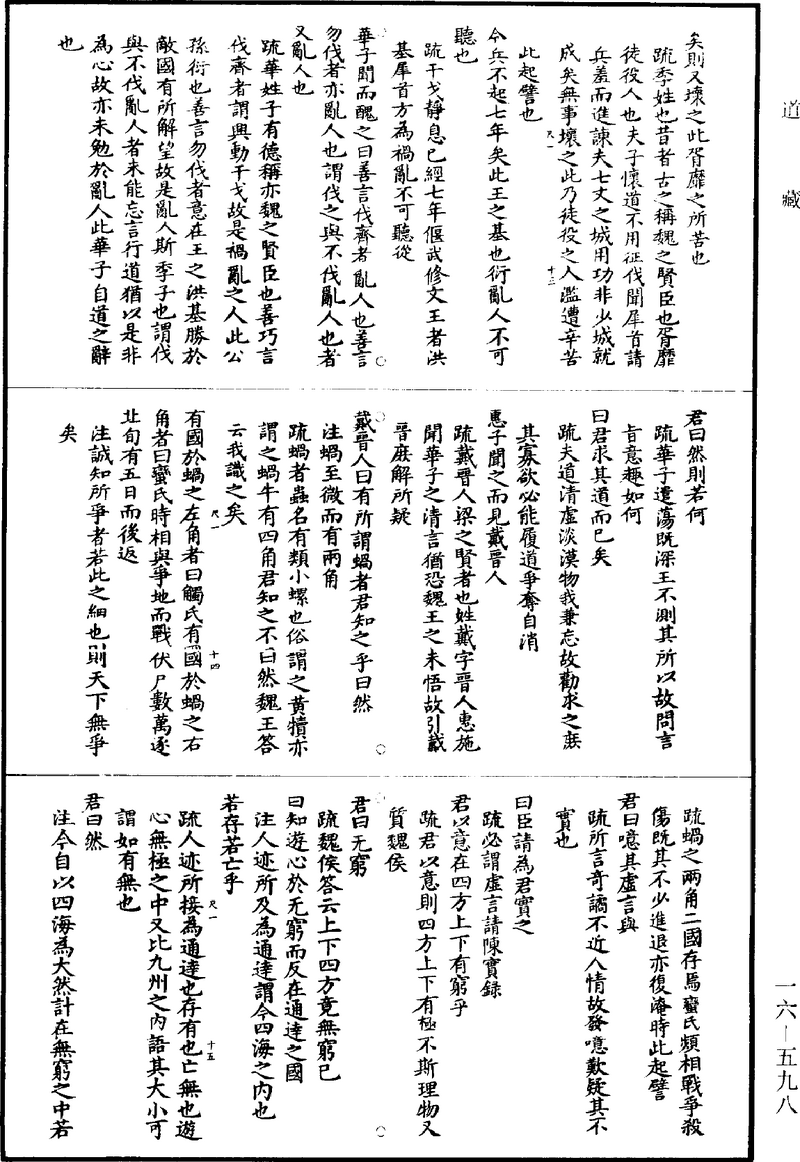 道藏
矣則又壞之此胥靡之所苦也
疏季姓也昔者古之稱魏之賢臣也胥靡
徒役人也夫子懷道不用征伐聞犀首請
兵羞而進諫夫七丈之城用功非少城就
成矣無事壞之此乃徒役之人濫遭辛苦
此起譬也
尺一
十三
今兵不起七年矣此王之基也衍亂人不可
聽也
疏干戈靜息已經七年偃武修文王者洪
基犀首方為禍亂不可聽從
華子聞而醜之曰善言伐齊者亂人也善言
勿伐者亦亂人也謂伐之與不伐亂人也者
又亂人也
疏華姓子有德稱亦魏之賢臣也善巧言
伐齊者謂興動干戈故是禍亂之人此公
孫衍也善言勿伐者意在王之洪基勝於
敵國有所解望故是亂人斯季子也謂伐
與不伐亂人者未能忘言行道猶以是非
為心故亦未勉於亂人此華子自道之辭
也
君曰然則若何
疏華子遣蕩既深王不測其所以故問言
旨意趣如何
曰君求其道而已矣
疏夫道清虛淡漠物我兼忘故勸求之庶
其寡欲必能履道爭奪自消
惠子聞之而見戴晉人
疏戴晉人梁之賢者也姓戴字晉人惠施
聞華子之清言猶恐魏王之未悟故引戴
晉庶解所疑
戴晉人曰有所謂蝸者君知之乎曰然
注蝸至微而有兩角
疏蝸者蟲名有類小螺也俗謂之黃犢亦
謂之蝸牛有四角君知之不曰然魏王答
云我識之矣
有國於蝸之左角者曰觸氏有國於蝸之右
尺一
十四
角者曰蠻氏時相與爭地而戰伏尸數萬逐
北旬有五日而後返
注誠知所爭者若此之細也則天下無爭
矣
疏蝸之兩角二國存焉蠻氏頻相戰爭殺
傷既其不少進退亦復淹時此起譬
君曰噫其虛言與
疏所言奇譎不近人情故發噫歎疑其不
實也
曰臣請為君實之
疏必謂虛言請陳實錄
君以意在四方上下有窮乎
疏君以意則四方上下有極不斯理物又
質魏侯
君曰无窮
疏魏侯答云上下四方竟無窮已
曰知遊心於无窮而反在通達之國
注人迹所及為通達謂今四海之內也
若存若亡乎
疏人迹所接為通達也存有也亡無也遊
尺一
十五
心無極之中又比九州之內語其大小可
謂如有無也
君曰然
注今自以四海為大然計在無窮之中若
一六—五九八